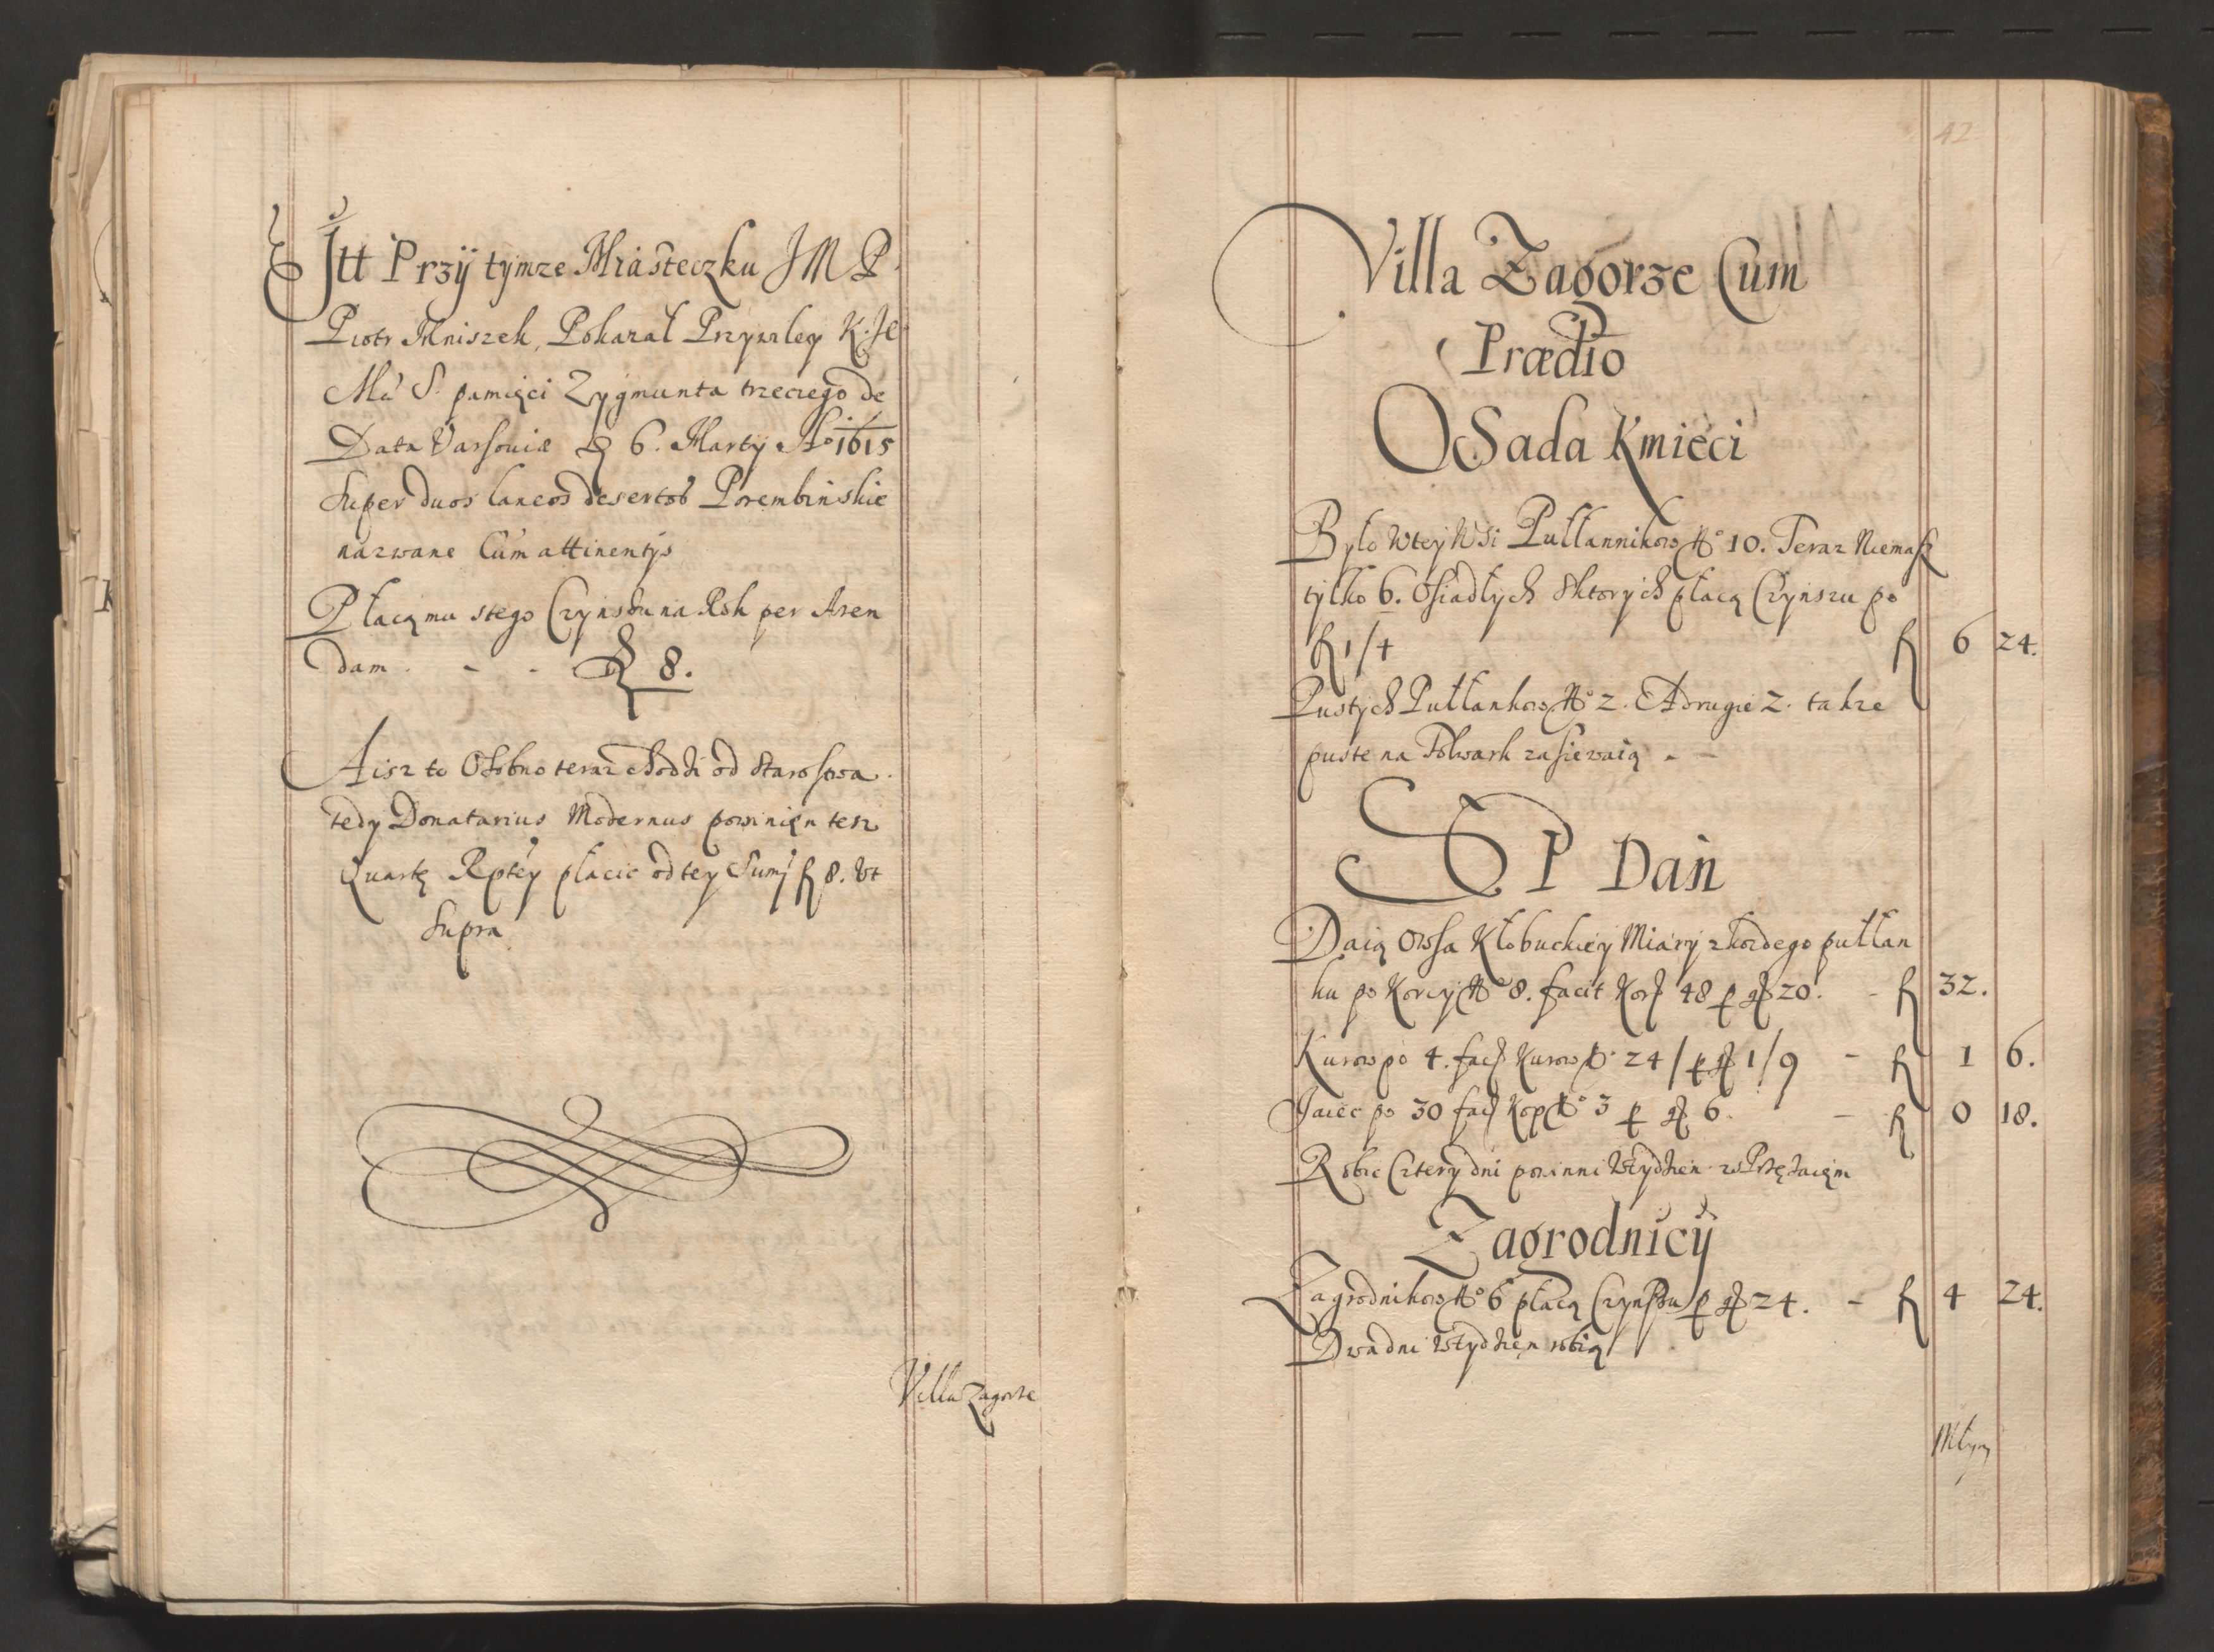 Itt Przÿ tymze Miasteczku JMP
Piotr Mniszek, Pokazał Przywiley K. Je
Mći S. pamięci Zygmunta trzeciego de
Data Varsouiæ 6. Martÿ Ao 1615
Super duos laneos desertos Porembinskie
nazwane Cum attinentÿs
Płacą mu stego Czynszu na Rok per Aren
dam - - fl 8.
A isz to Osobno teraz chodzi od starostwa
tedy Donatarius Modernus powinien tesz
Quartę Rptey płacic od tey Sumÿ fl 8. Vt
Supra
Villa Zagorze
42
Villa Zagorze Cum
Prædio
Osada Kmieci
Było wtey Wsi Pułłannikow No 10. Teraz Niemasz
tylko 6. Osiadłych Sktorych płacą Czynszu po
fl 1/4 fl 6 24.
Pustych Pułłankow No 2. A drugie 2. takze
puste na Folwark zasiewaią - -
Dan
Daią Owsa Kłobuckieÿ Miarÿ zkozdego pułłan
ku po Korcÿ No 8. facit Kor 48 p gr 20. - fl 32.
Kurow po 4. fac Kurow No 24 / p gr 1/9 - fl 1 6.
Jaiec po 30 fac Kop No 3 p gr 6. - fl 0 18.
Robic Czterÿ dni powinni wtydzien zaPrzężaięm
Zagrodnicÿ
Zagrodnikow No 6 płacą Czynszu p gr 24. - fl 4 24.
Dwa dni wtydzien robią
Młyn